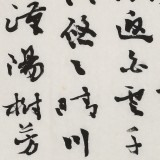 返白雲千
悠々晴川
漢陽樹芳